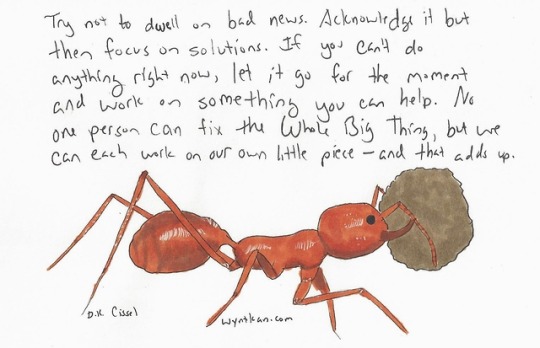 Try not to dwell on bad news. Acknowledge it but
then focus on solutions. If you can't do
anything right now, let it go for the moment
and work on something you can help. No
one person can fix the Whole Big Thing, but we
can each work on our own little piece – and that adds up.
D.K. Cissel
wyntkan.com